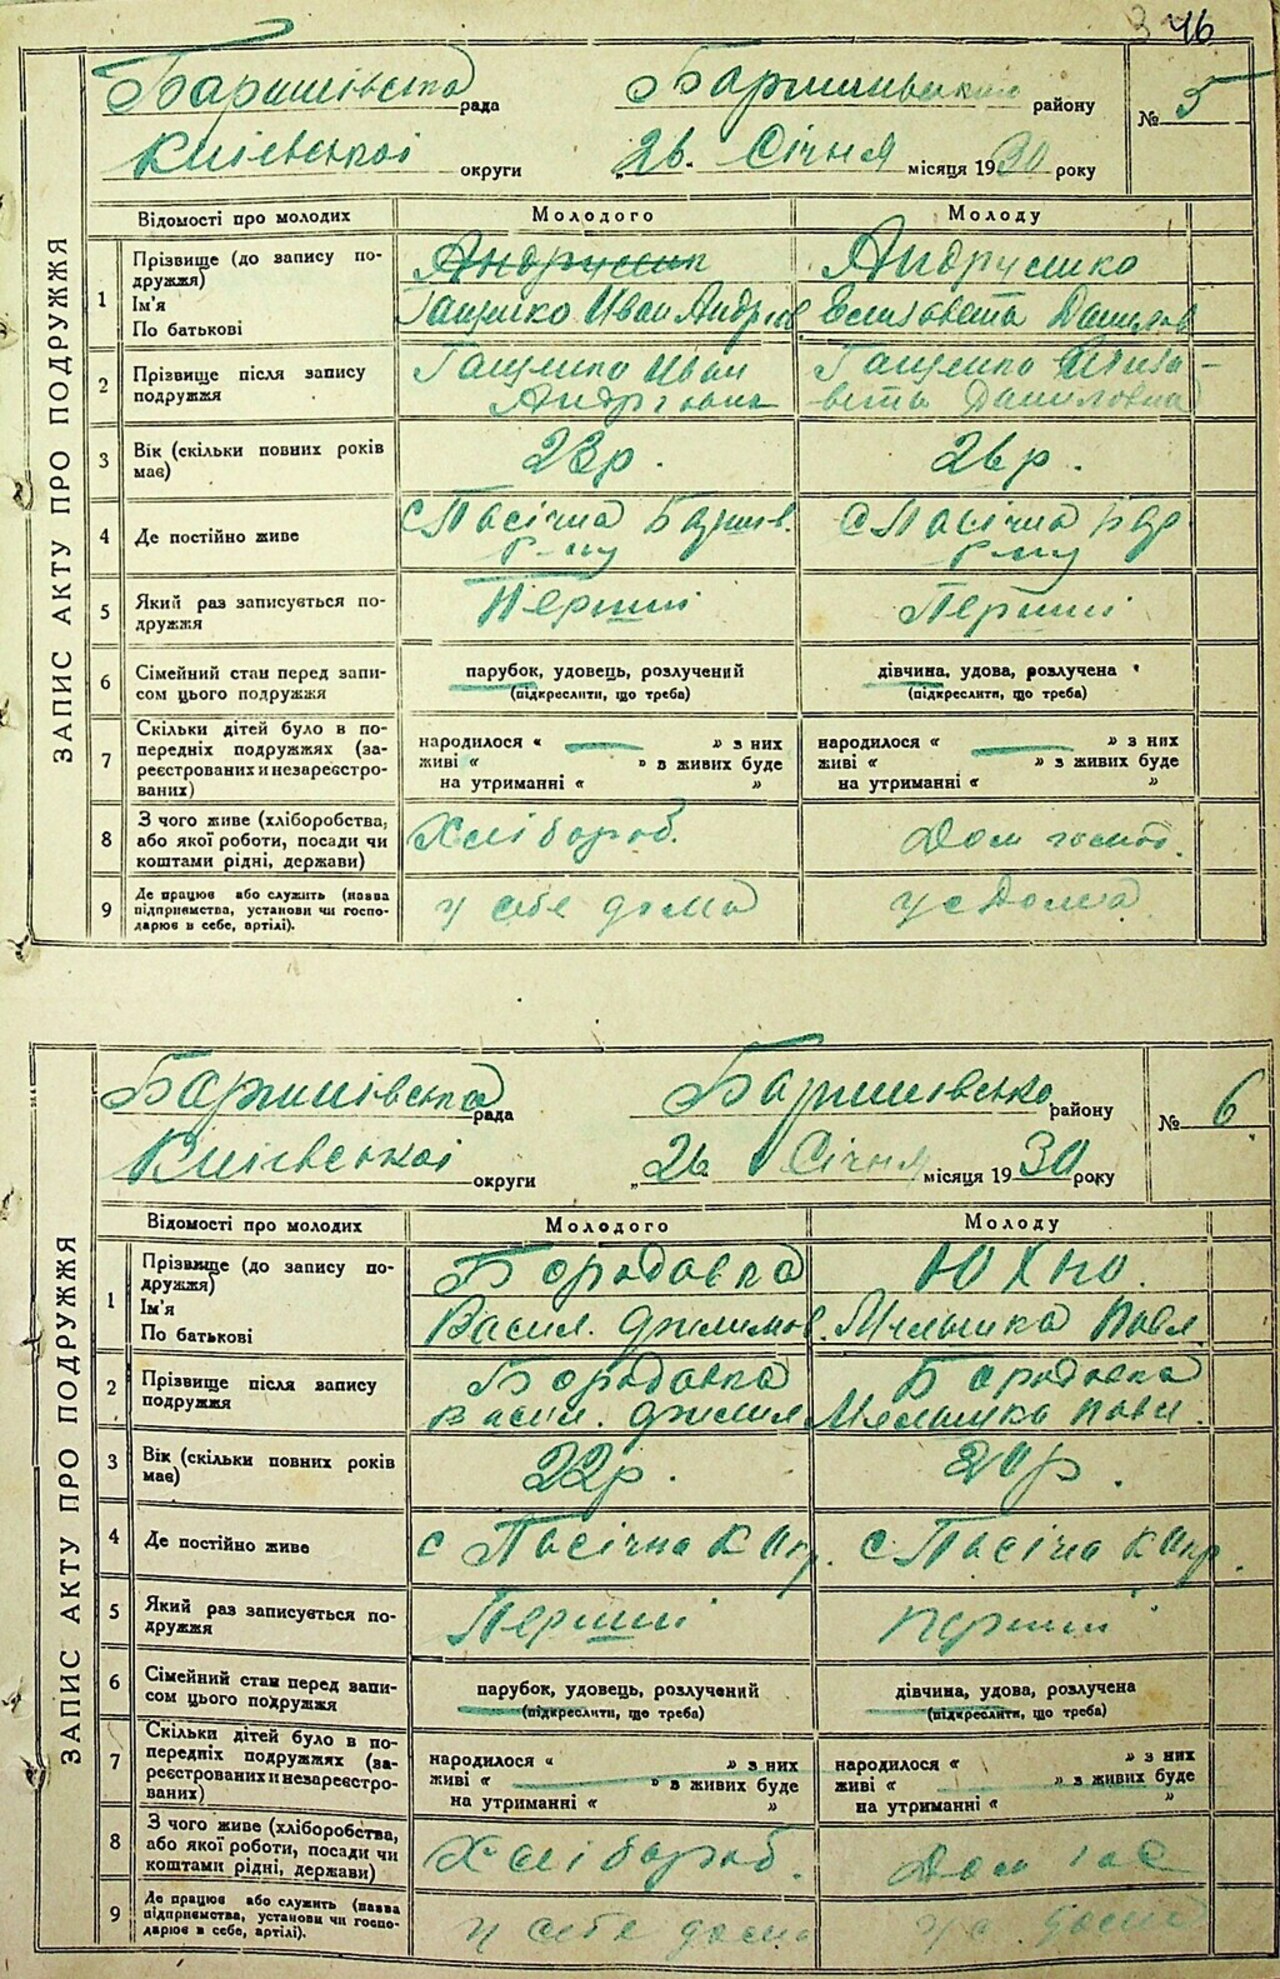 46
Баришівська рада Баришівського району № 5
Київської округи „26. Січня місяця 1930 року
ЗАПИС АКТУ ПРО ПОДРУЖЖЯ
Відомості про молодих Молодого Молоду
1 Прізвище (до запису подружжя)
Ім'я
По батькові
Андрушко
Гащенко Иван Андріев Елизавета Данилов
2 Прізвище після запису подружжя
Гащенко Иван Гащенко Елиза-
Андріович вета Даниловна
3 Вік (скільки повних років має) 23р. 26р.
4 Де постійно живе
с Пасічна Бариш. с Пасічна Бар.
р-ну р-ну
5 Який раз записується подружжя Перший Перший
6 Сімейний стан перед записом цього подружжя
парубок, удовець, розлучений дівчина, удова, розлучена
(підкреслити, що треба) (підкреслити, що треба)
7 Скільки дітей було в попередніх подружжях (зареєстрованих и незареєстрованих)
народилося « — » з них народилося « — » з них
живі « » в живих буде живі « » в живих буде
на утриманні « » на утриманні « »
8 З чого живе (хліборобства, або якої роботи, посади чи коштами рідні, держави) Хлібороб. Дом госпо.
9 Де працює або служить (назва підприємства, установи чи господарює в себе, артілі). у себе дома у с дома
Баришівська рада Баришівсько району № 6
Київської округи „26 Січня місяця 1930 року
ЗАПИС АКТУ ПРО ПОДРУЖЖЯ
Відомості про молодих Молодого Молоду
1 Прізвище (до запису подружжя)
Ім'я
По батькові
Бородавка Юхно.
Васил. Филимов. Мельника Павл
2 Прізвище після запису подружжя
Бородавка Бородавка
Васил. Филим Павл.
3 Вік (скільки повних років має) 22р. 20р.
4 Де постійно живе с Пасічна с Пасічна
5 Який раз записується подружжя Перший Перший
6 Сімейний стан перед записом цього подружжя
парубок, удовець, розлучений дівчина, удова, розлучена
(підкреслити, що треба) (підкреслити, що треба)
7 Скільки дітей було в попередніх подружжях (зареєстрованих и незареєстрованих)
народилося « » з них народилося « » з них
живі « » в живих буде живі « » в живих буде
на утриманні « » на утриманні « »
8 З чого живе (хліборобства, або якої роботи, посади чи коштами рідні, держави) Хлібороб. Дом
9 Де працює або служить (назва підприємства, установи чи господарює в себе, артілі). у себе дома у с. дома